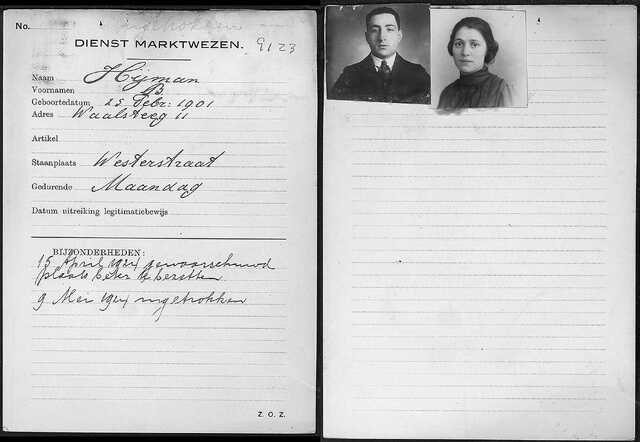 No.
DIENST MARKTWEZEN. 9123
Naam Hijman
Voornamen B
Geboortedatum 25 Febr: 1901
Adres Waalsteeg 11
Artikel
Staanplaats Westerstraat
Gedurende Maandag
Datum uitreiking legitimatiebewijs
BIJZONDERHEDEN:
15 April 1924 gewaarschuwd
plaats beter te bezetten
9 Mei 1924 ingetrokken
Z. O. Z.